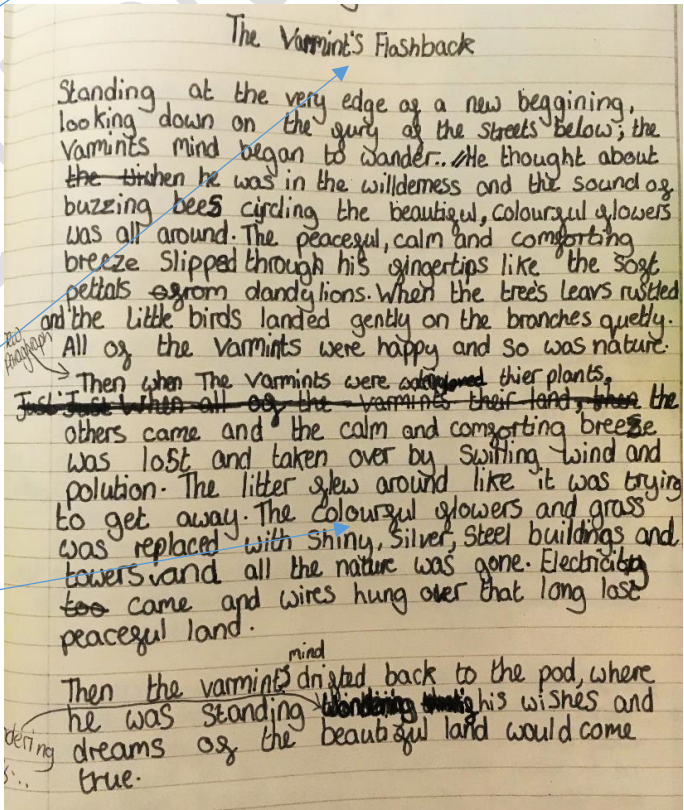 The Varmint's Flashback
Standing at the very edge of a new beggining,
looking down on the fury of the streets below; the
Varmints mind began to wander..//He thought about
the when he was in the willderness and the sound of
buzzing bees circling the beautiful, colourful flowers
was all around. The peaceful, calm and comforting
breeze slipped through his fingertips like the soft
pettals from dandylions. When the tree's leavs rustled
and the little birds landed gently on the branches quetly.
All of the Varmints were happy and so was nature.
Paragraph
Then when The Varmints were thier plants,
Just Just When all of the varmints their land, then the
others came and the calm and comforting breeze
was lost and taken over by swirling wind and
polution. The litter flew around like it was trying
to get away. The colourful flowers and grass
was replaced with shiny, silver, steel buildings and
towers and all the nature was gone. Electricity
too came and wires hung over that long lost
peaceful land.
mind
Then the varmint's drifted back to the pod, where
he was standing his wishes and
dering
dreams of the beautiful land would come
true.